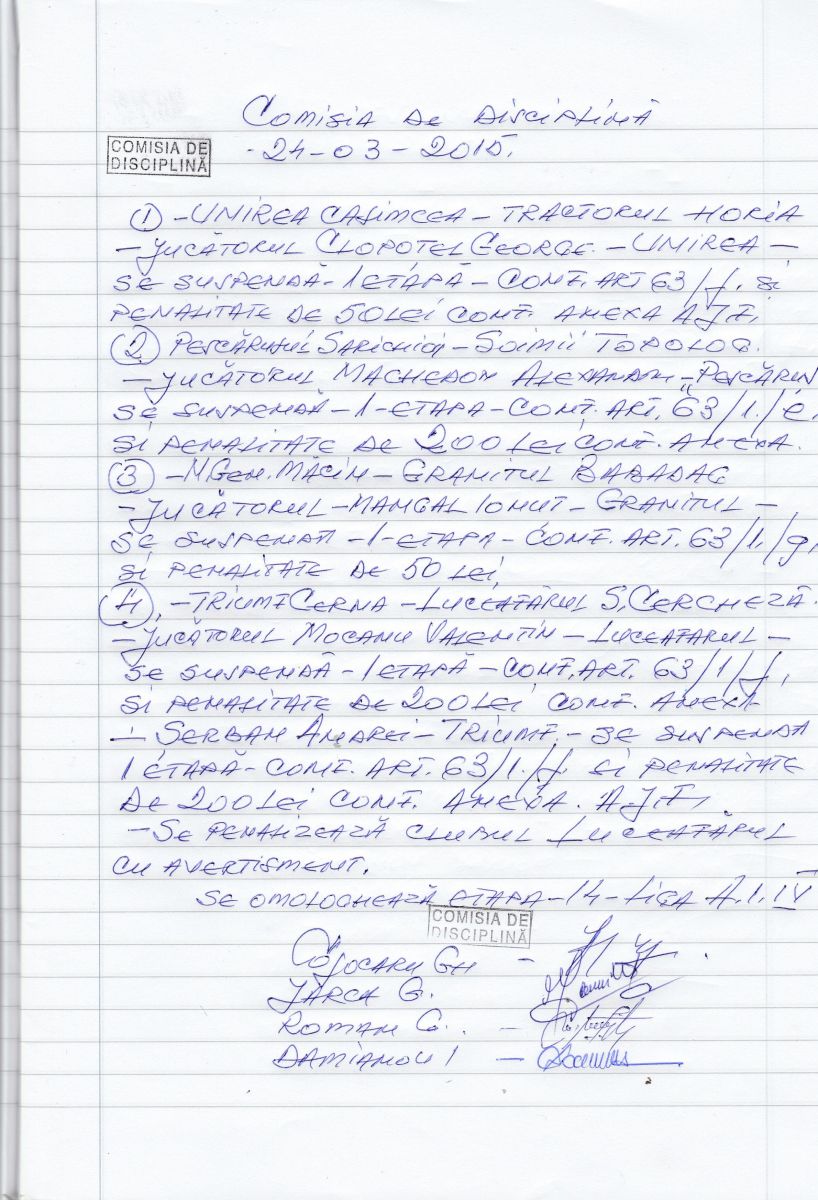 COMISIA DE DISCIPLINĂ
COMISIA DE
DISCIPLINĂ
-24-03-2015.
① -UNIREA CASIMCEA - TRACTORUL HORIA
- JUCĂTORUL CLOPOTEL GEORGE - UNIREA -
SE SUSPENDĂ - 1 ETAPĂ - CONF. ART 63/f. si
PENALITATE DE 50 LEI CONF. ANEXA AJF.
② PESCĂRUSUL SARICHIOI - SOIMII TOPOLOG.
- JUCĂTORUL MACHEDON ALEXANDRU „PESCĂRUS
SE SUSPENDĂ - 1 - ETAPA - CONF. ART. 63/1./e.
SI PENALITATE DE 200 LEI CONF. ANEXA.
③ - N GEN. MĂCIN - GRANITUL BABADAG
- JUCĂTORUL - MANGAL IONUT - GRANITUL -
SE SUSPENDĂ - 1 - ETAPA - CONF. ART. 63/1./g.
SI PENALITATE DE 50 LEI.
④. - TRIUMF CERNA - LUCEAFĂRUL S. CERCHEZĂ.
- JUCĂTORUL MOCANU VALENTIN - LUCEAFARUL -
SE SUSPENDĂ - 1 ETAPĂ - CONF. ART. 63/1/f.
SI PENALITATE DE 200 LEI CONF. ANEXA
- SERBAN ANDREI - TRIUMF. - SE SUSPENDA
1 ETAPĂ - CONF. ART. 63/1./f. SI PENALITATE
DE 200 LEI CONF. ANEXA. AJF.
- SE PENALIZEAZĂ CLUBUL LUCEAFĂRUL
CU AVERTISMENT.
SE OMOLOGHEAZĂ ETAPA - 14 - LIGA A. 1. IV
COMISIA DE
DISCIPLINĂ
COJOCARU GH -
JARCA G.
ROMAN C. -
DAMIANOV I -